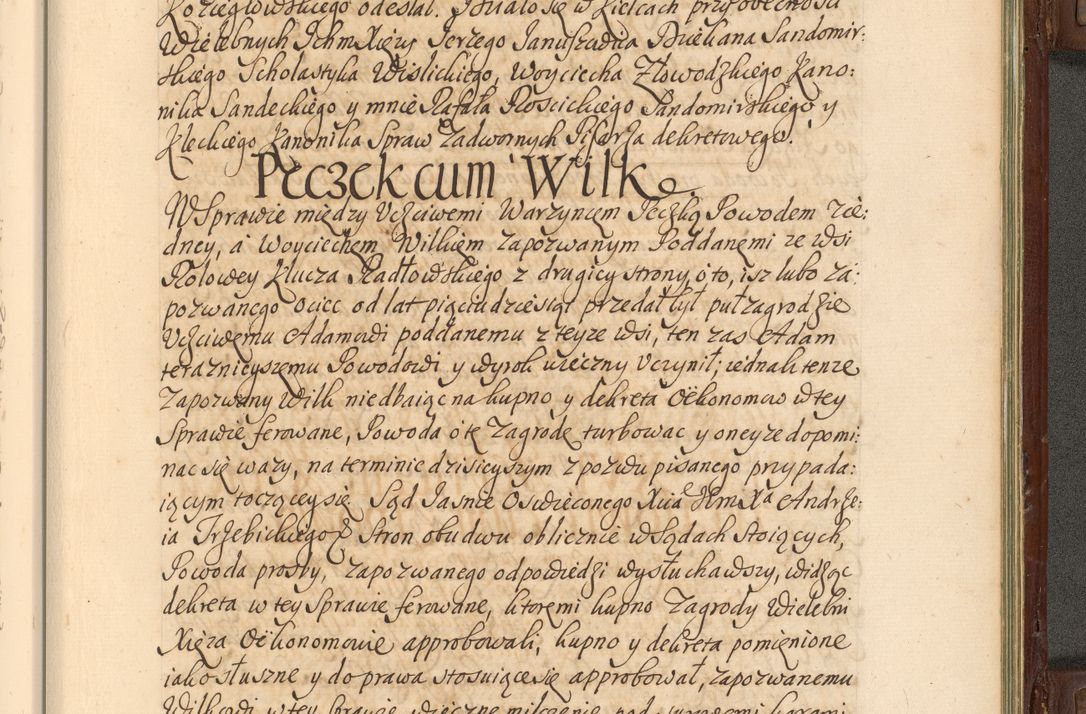 Koziegłowskiego odesłał. Działo się w Kielcach przy obecnosci
Wielebnych Ichm Xięzy Jerzego Januszewica Dziekana Sandomir:
skiego Scholastyka Wislickiego, Woyciecha Złowodzkiego Kano:
nika Sandeckiego y mnie Rafała Roscickiego Sandomirskiego y
Kleckiego Kanonika Spraw Zadwornych Pisarza dekretowego.
Pęczek cum Wilk
W Sprawie między Uczciwemi Warzyncem Pęczką Powodem z ie:
dney, a Woyciechem Wilkiem Zapozwanym Poddanemi ze Wsi
Rolowey Klucza Radłowskiego z drugiey strony, o to, isz lubo za:
pozwanego ociec od lat pięciudziesiąt przedał był pułzagrodzie
Uczciwemu Adamowi poddanemu z teyze Wsi, ten zas Adam
teraznieyszemu Powodowi y wyrok wieczny Uczynił; iednak tenze
Zapozwany Wilk niedbaiąc na kupno y dekreta Oekonomow w tey
Sprawie ferowane, Powoda o tę Zagrodę turbowac y oneyze dopomi:
nac się wazy, na terminie dzisieyszym z pozwu pisanego przypada:
iącym toczącey się Sąd Jasnie Oswieconego Xcia Jkm Xa Andrze:
ia Trzebickiego Stron obudwu oblicznie w Sądach Stoiących,
Powoda prosby, Zapozwanego odpowiedzi wysłuchawszy, widząc
dekreta w tey Sprawie ferowane, ktoremi kupno Zagrody Wielebni
Xięza Oekonomowie approbowali, kupno y dekreta pomienione
iako słuszne y do prawa stosuiące się approbował, Zapozwanemu
Wilkowi w tey Sprawie wieczne milczenie pod surowemi karami